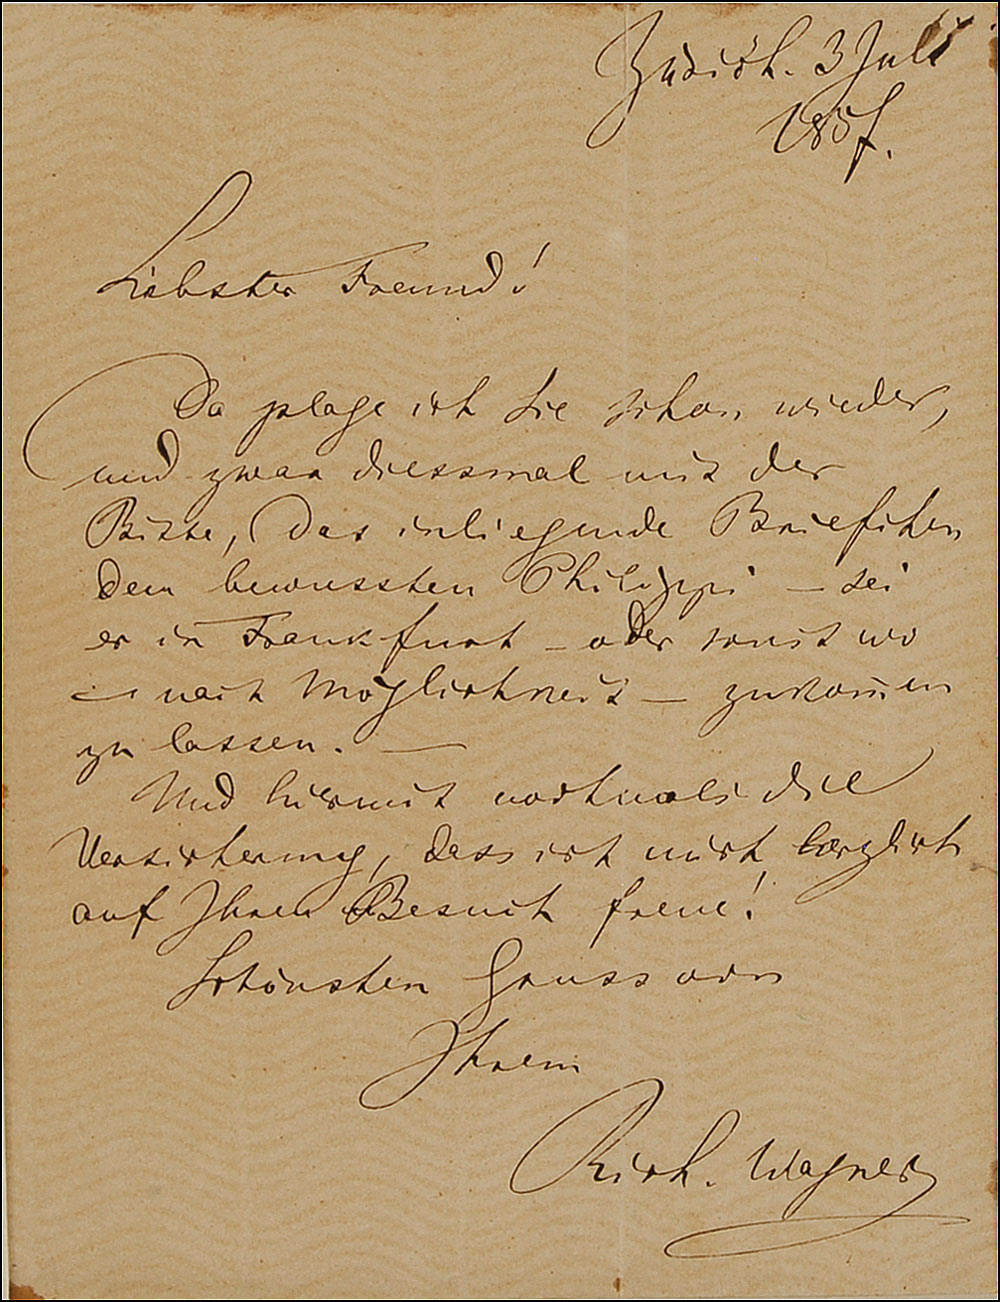 Zürich. 3 Juli
1857.
Liebster Freund!
Da plage ich Sie schon wieder,
und zwar diessmal mit der
Bitte, das inliegende Briefchen
dem bewussten Philippi – sei
er in Frankfurt – oder sonst wo
– nach Möglichkeit – zukom̄en
zu lassen. —
Und hiermit nochmals die
Versicherung, dass ich mich herzlich
auf Ihren Besuch freue!
Schönsten Gruss von
Ihrem
Rich. Wagner